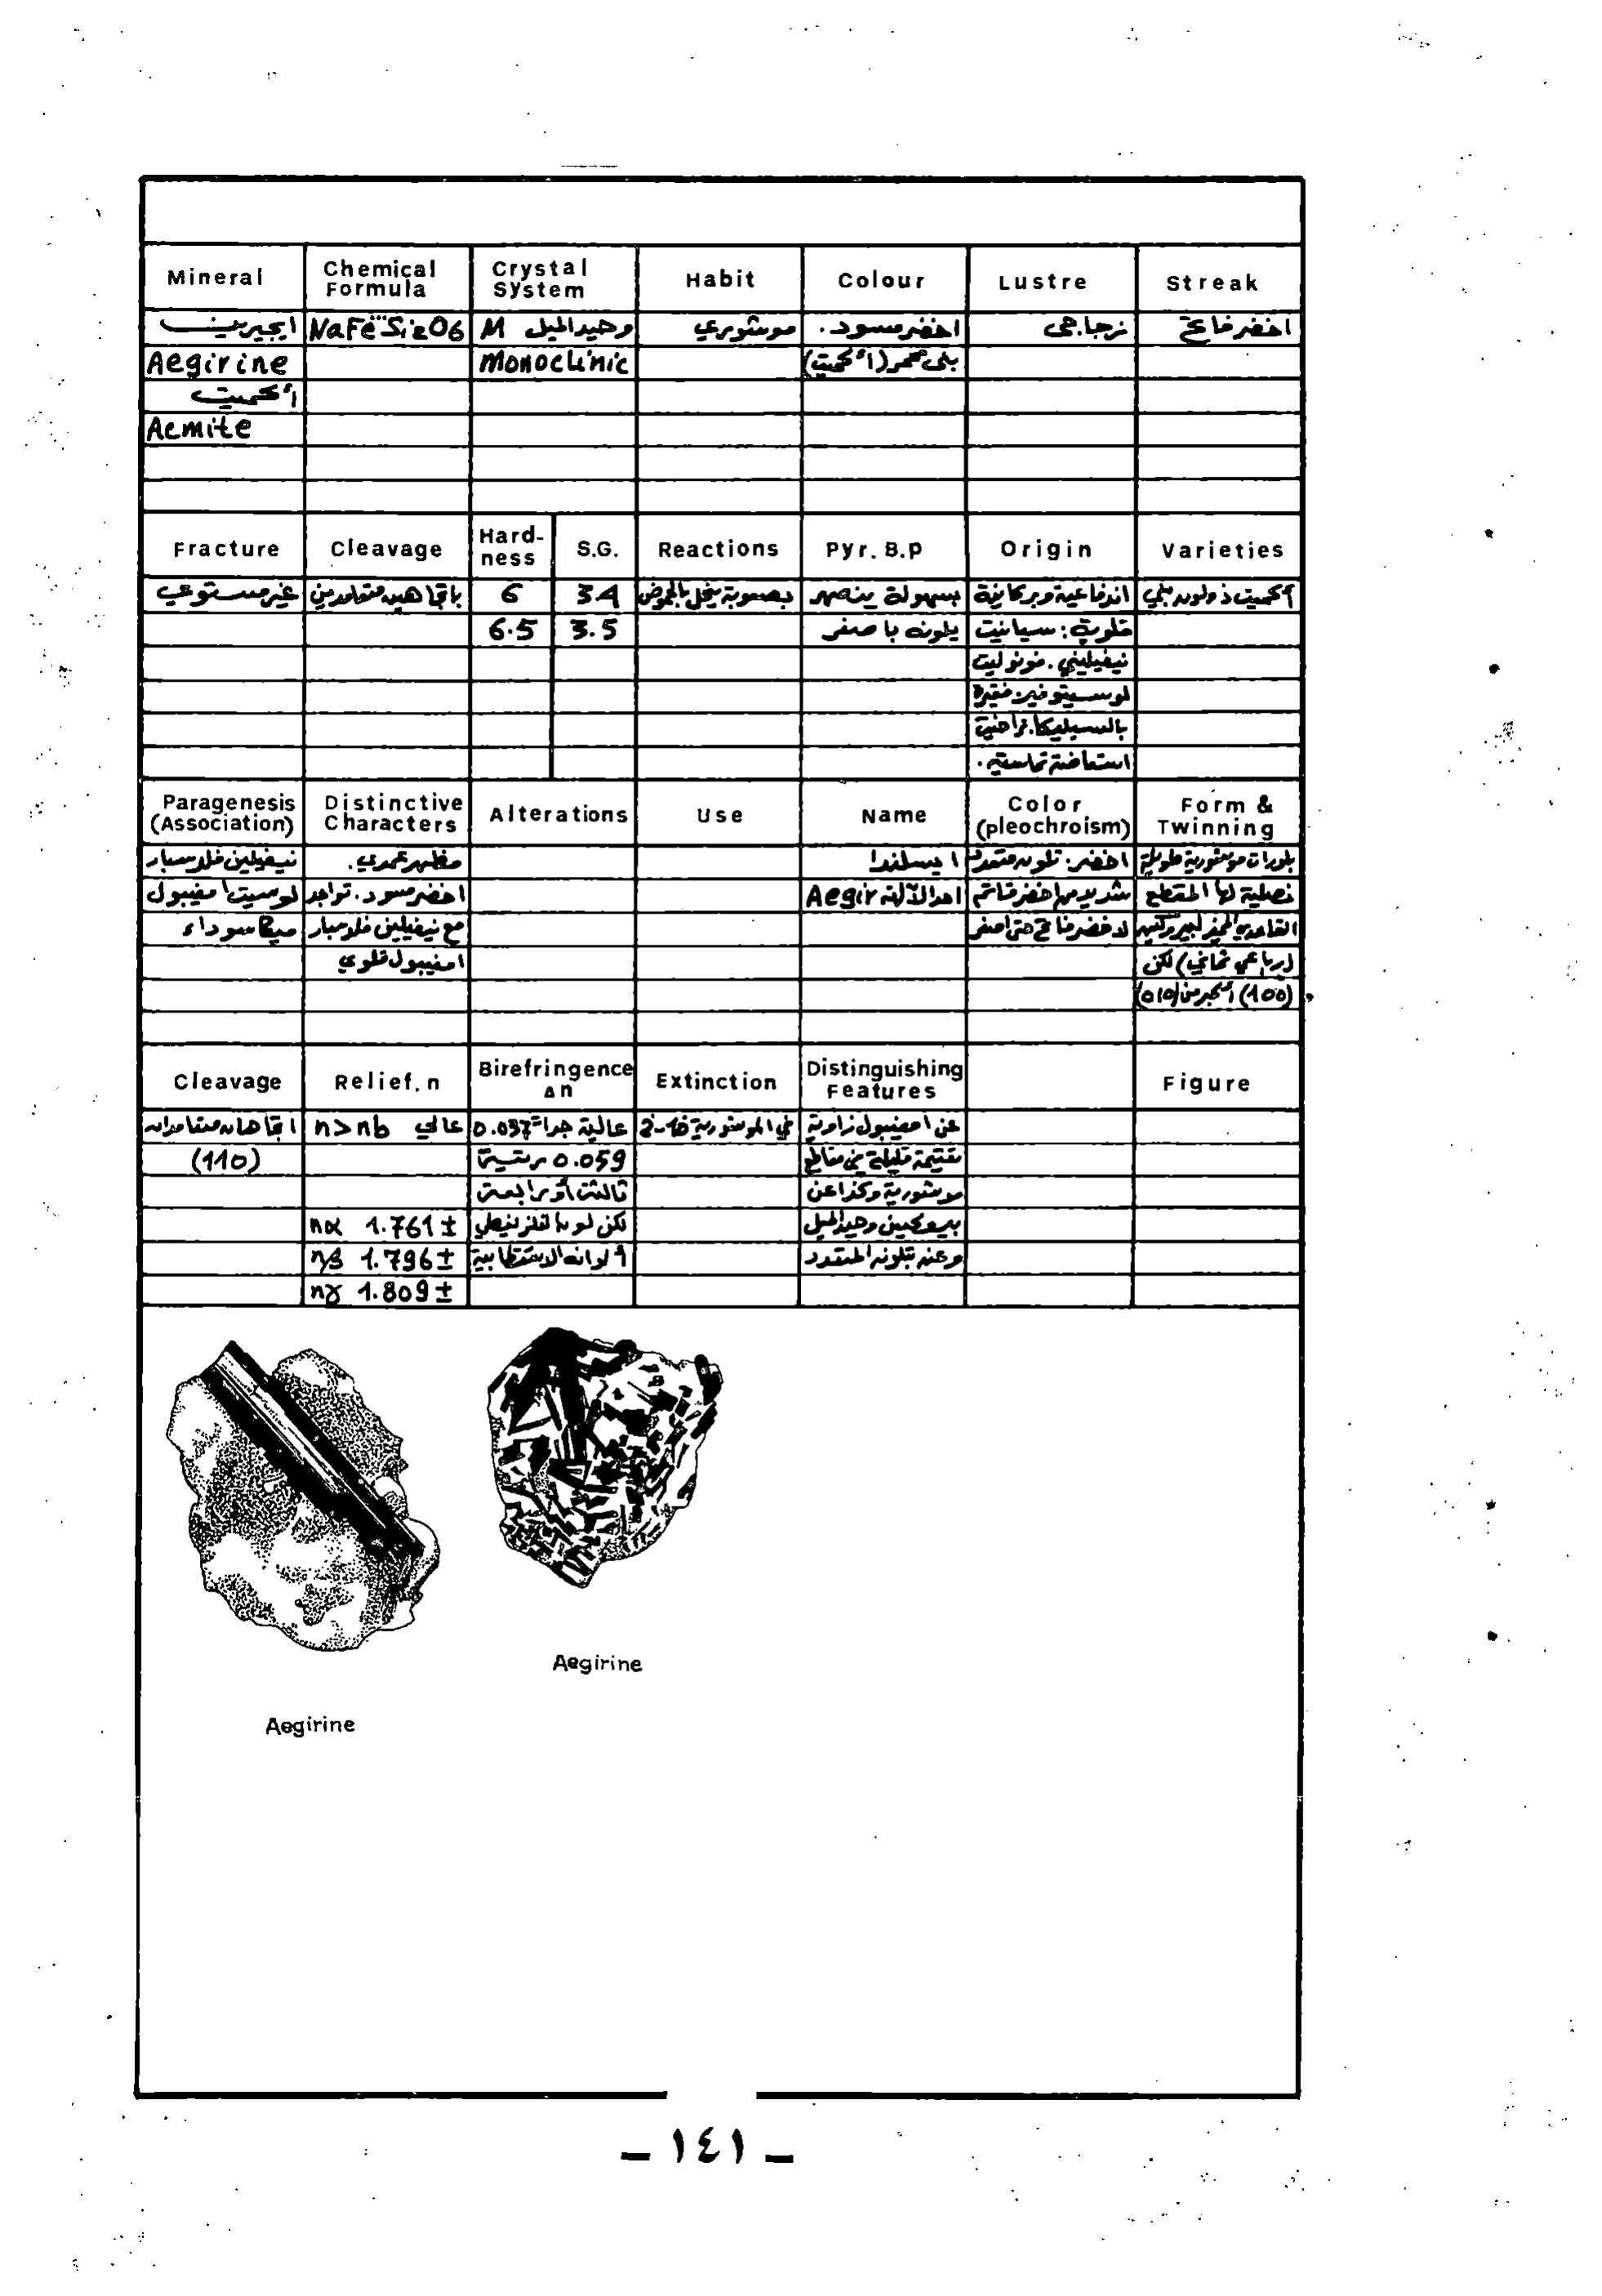 Mineral | Chemical Formula | Crystal System | Habit | Colour | Lustre | Streak
ايجيرين | NaFe'''Si2O6 | وحيد الميل M | موشوري | اخضر مسود. | زجاجي | اخضر فاتح
Aegirine | Monoclinic | بني محمر (أكميت)
أكميت
Acmite
Fracture | Cleavage | Hard-ness | S.G. | Reactions | Pyr. B.p | Origin | Varieties
غير مستوي | باتجاهين متعامدين | 6 | 3.4 | بصعوبة ينحل بالحموض | بسهولة ينصهر | اندفاعية وبركانية | أكميت ذو لون بني
6.5 | 3.5 | يلونه باصفر | قلوية: سيانيت
نيفيليني. فونوليت
لوسيتوفير. فقيرة
بالسيليكا.
استعاضة تماسية.
Paragenesis (Association) | Distinctive Characters | Alterations | Use | Name | Color (pleochroism) | Form & Twinning
نيفيلين فلدسبار | مظهر عمدي. | ايسلندا | اخضر. تلون متعدد | بلورات موشورية طويلة
لوسيت امفيبول | اخضر مسود. تواجد | احد الآلهة Aegir | شديد من اخضر قاتم | نصلية لها المقطع
ميكا سوداء | مع نيفيلين فلدسبار | لاخضر فاتح حتى اصفر | القاعدي المميز لبيروكسين
امفيبول قلوي | (رباعي ثماني) لكن
(100) أكبر من (010)
Cleavage | Relief. n | Birefringence Δn | Extinction | Distinguishing Features | Figure
اتجاهان متعامدان | عالي n > nb | عالية جدا 0.037- | في الموشورية 10-2 | عن امفيبول زاوية
(110) | 0.059 مرتبة | تعتيمة قليلة في مقاطع
ثالثة أو رابعة | موشورية وكذا عن
nα 1.761± | لكن لون الفلز يغطي | بيروكسين وحيد الميل
nβ 1.796± | ألوانه الاستقطابية | وعنه بتلونه المتعدد
nγ 1.809±
Aegirine
Aegirine
– ١٤١ –